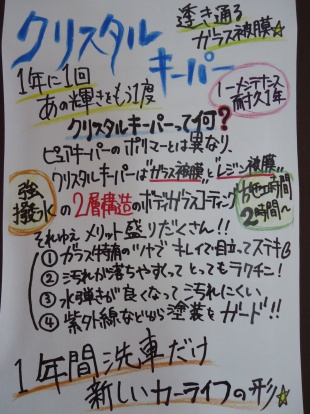 クリスタル
キーパー
透き通る
ガラス被膜☆
1年に1回
あの輝きをもう1度
ノーメンテナンス
耐久1年
クリスタルキーパーって何?
ピュアキーパーのポリマーとは異なり、
クリスタルキーパーは"ガラス被膜"と"レジン被膜"
の2層構造のボディガラスコーティング
強
撥水
2時間〜
それゆえメリット盛りだくさん!!
① ガラス特有のツヤでキレイで目立ってステキ
② 汚れが落ちやすくってとってもラクチン!
③ 水弾きが良くなって汚れにくい
④ 紫外線などから塗装をガード!!
1年間洗車だけ
新しいカーライフの形☆